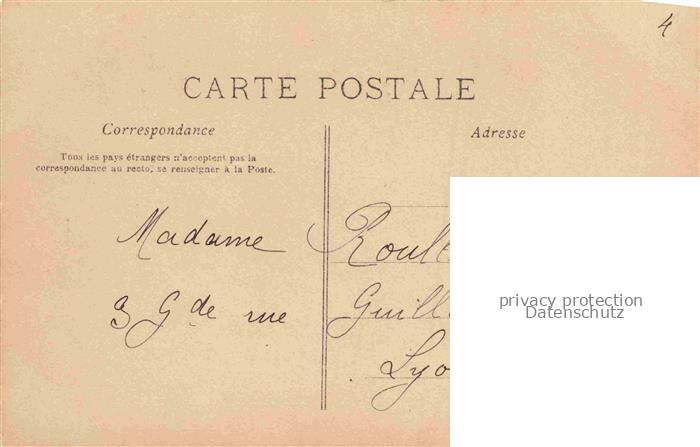 4
CARTE POSTALE
Correspondance
Adresse
Tous les pays étrangers n'acceptent pas la
correspondance au recto, se renseigner à la Poste.
Madame
3 Gde rue
privacy protection
Datenschutz